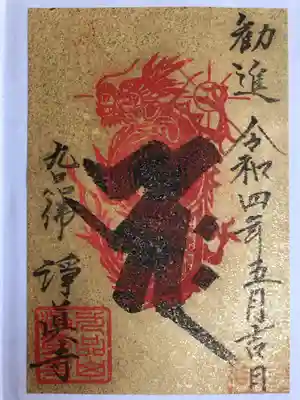 勧進 令和四年五月吉日
九品佛 淨眞寺